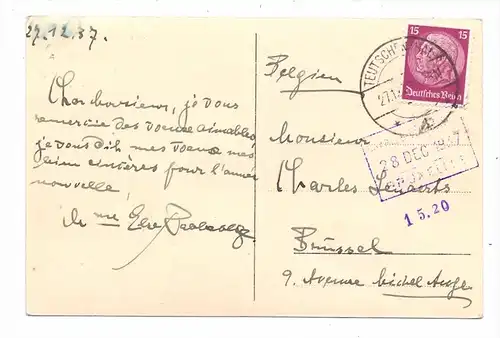 27.12.37.
Cher Monsieur, je vous
remercie des voeux aimables
je vous mes voeux mes
sincères pour l'année
nouvelle,
Belgien
Monsieur
Charles
Brüssel
9. Avenue Michel Ange
15 15
Deutsches Reich
28 DEC 1937
15.20